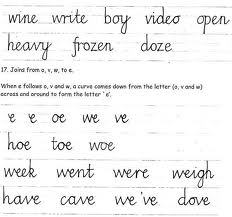 wine write boy video open
heavy frozen doze
17. Joins from o, v, w, to e.
When e follows o, v and w, a curve comes down from the letter (o, v and w)
across and around to form the letter 'e'.
e e oe we ve
hoe toe woe
week went were weigh
have cave we've dove